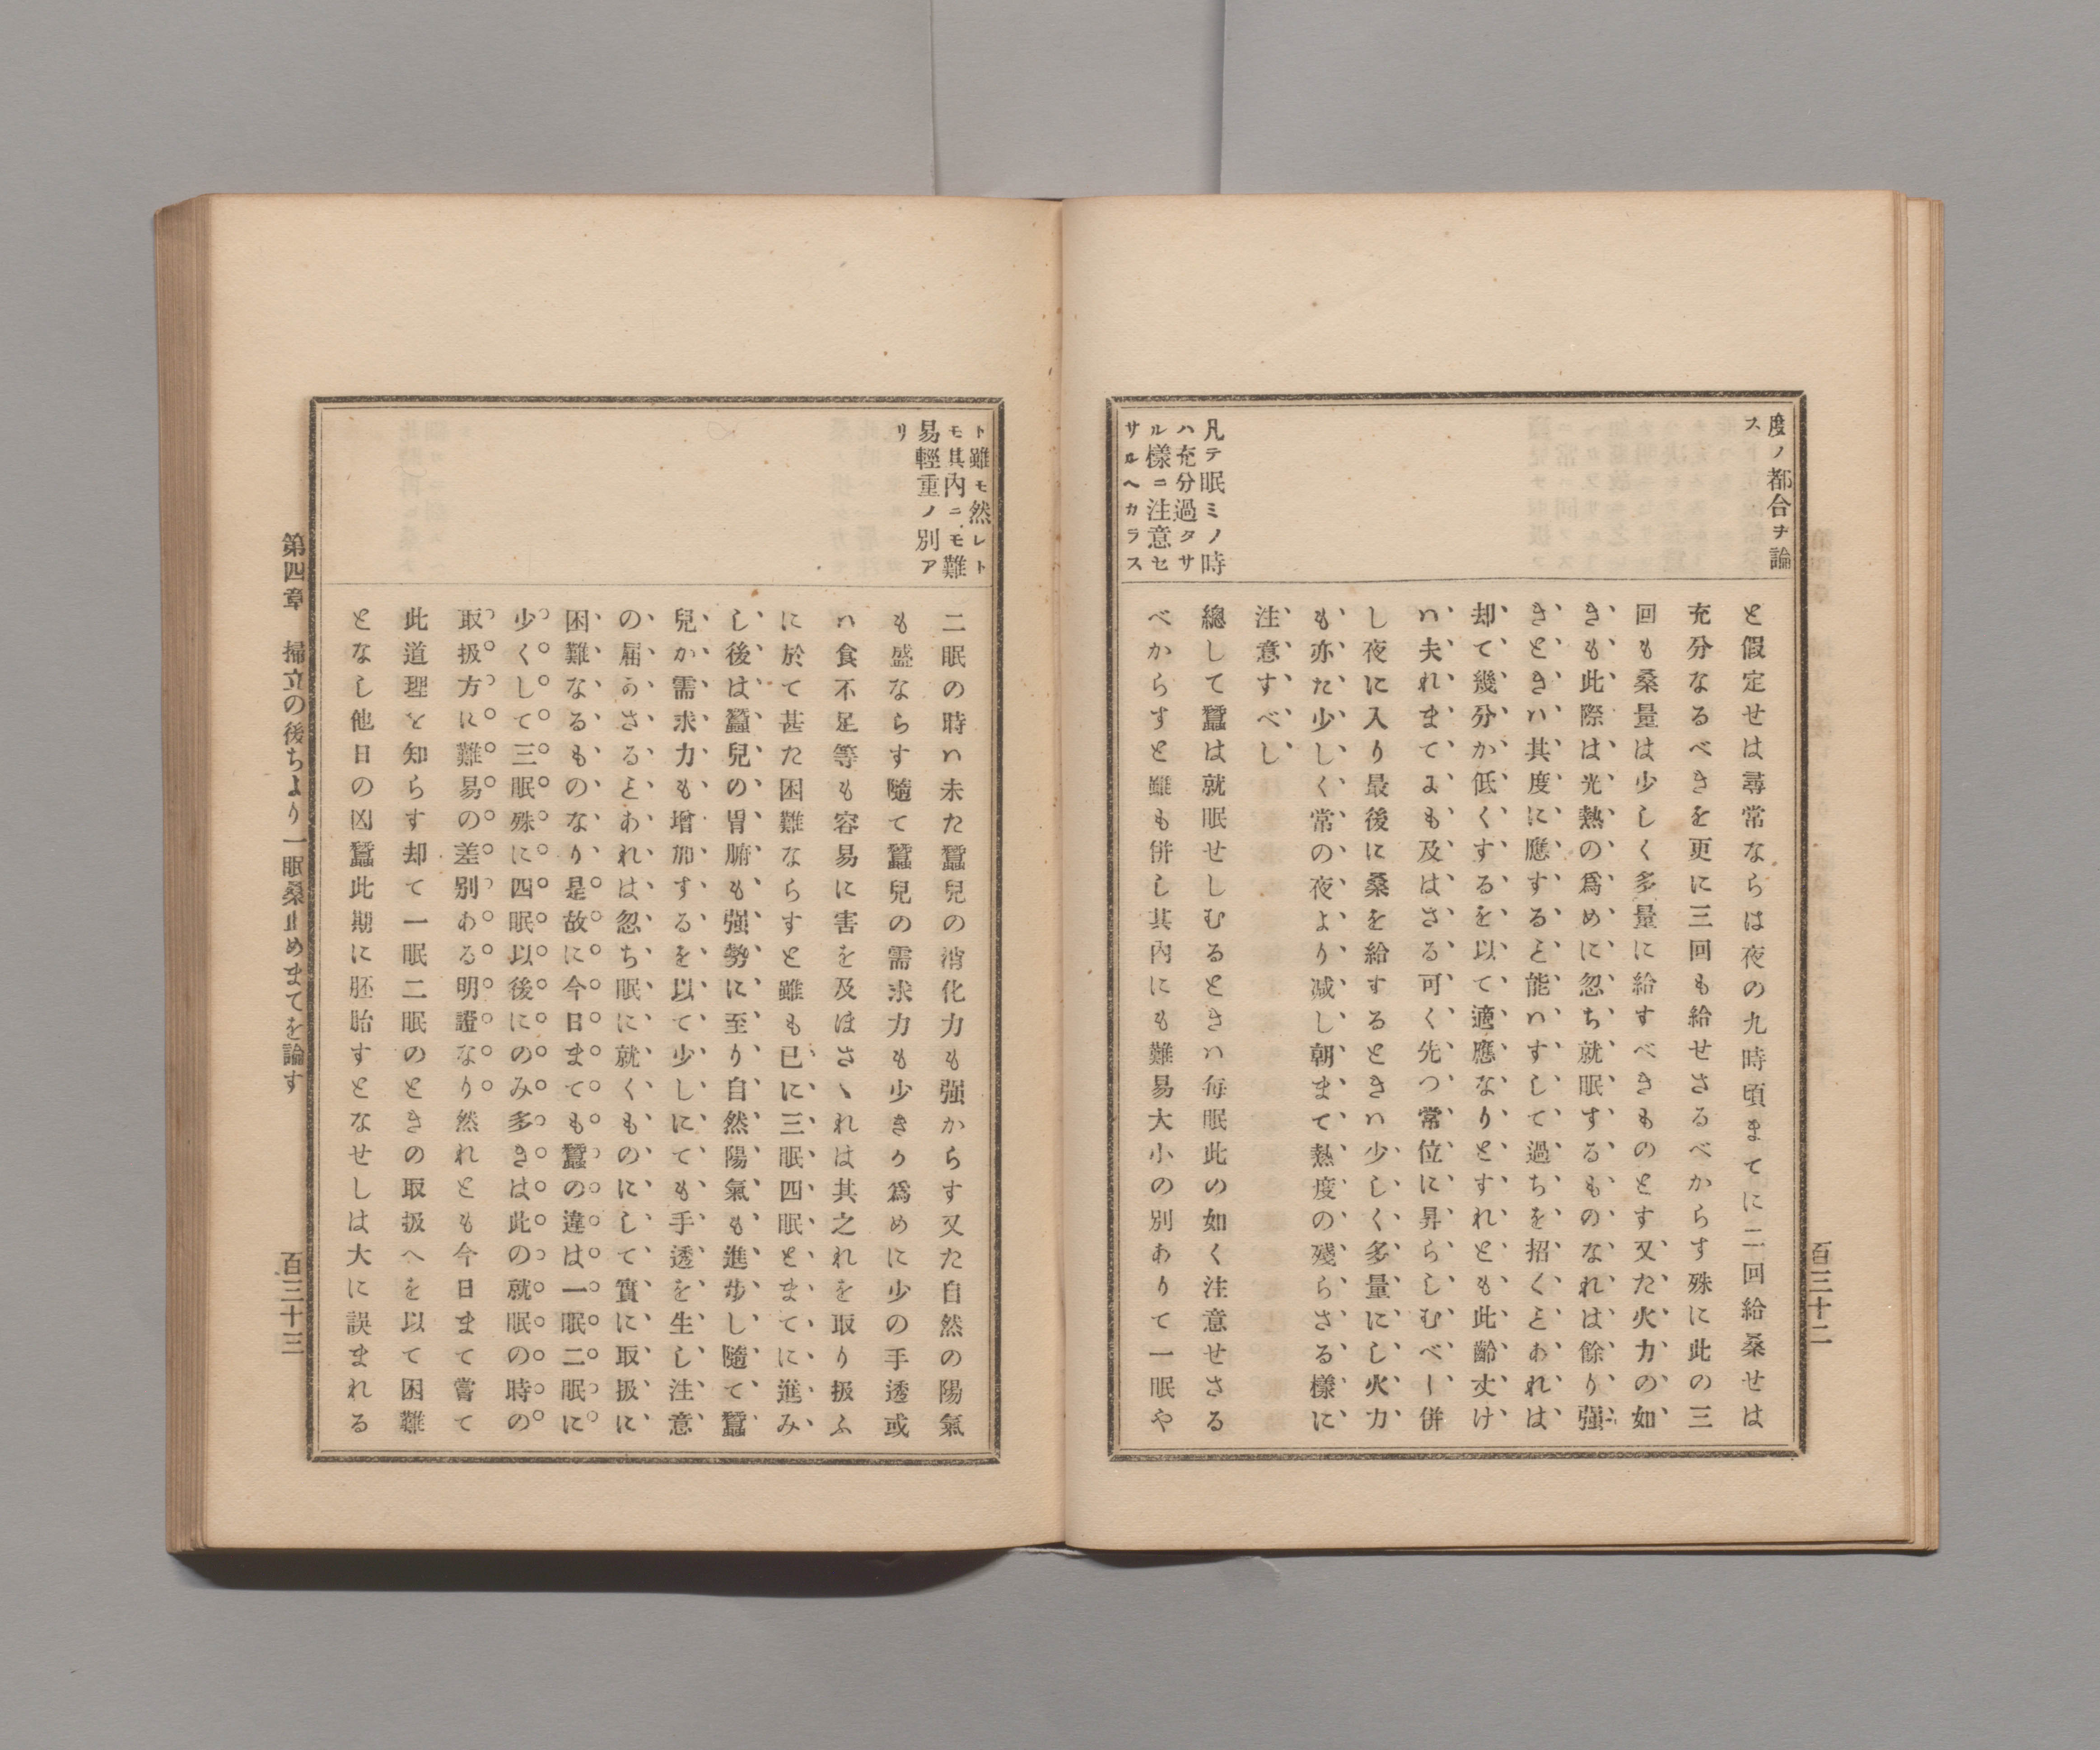 度ノ都合ヲ論
ス
凡テ眠ミノ時
ハ充分過タサ
ル樣ニ注意セ
サルヘカラス
と假定せは尋常ならは夜の九時頃まてに二回給桑せは
充分なるべきを更に三回も給せさるべからす殊に此の三
回も桑量は少しく多量に給すべきものとす又た火力の如
きも此際は光熱の爲めに忽ち就眠するものなれは餘り強
きときハ其度に應すると能ハすして過ちを招くとあれは
却て幾分か低くするを以て適應なりとすれとも此齡丈け
ハ夫れまてよも及はさる可く先つ常位に昇らしむべし併
し夜に入り最後に桑を給するときハ少しく多量にし火力
も亦た少しく常の夜より减し朝まて熱度の殘らさる樣に
注意すべし
總して蠶は就眠せしむるときハ每眠此の如く注意せさる
べからすと雖も併し其內にも難易大小の別ありて一眠や
百三十二
ト雖モ然レト
モ其内ニモ難
易輕重ノ別ア
リ
二眠の時ハ未た蠶兒の消化力も強からす又た自然の陽氣
も盛ならす隨て蠶兒の需求力も少きり爲めに少の手透或
ハ食不足等も容易に害を及ほさゝれは其之れを取り扱ふ
に於て甚た困難ならすと雖も已に三眠四眠とまてに進み
し後は蠶兒の胃腑も强勢に至り自然陽氣も進步し隨て蠶
兒か需求力も增加するを以て少しにても手透を生し注意
の届あさるとあれは忽ち眠に就くものにして實に取扱に
困難なるものなり是故に今日まても蠶の違は一眠二眠に
少くして三眠殊に四眠以後にのみ多きは此の就眠の時の
取扱方に難易の差別ある明證なり然れとも今日まて嘗て
此道理を知らす却て一眠二眠のときの取扱へを以て困難
となし他日の凶蠶此期に胚胎すとなせしは大に誤まれる
第四章　掃立の後ちより一眠桑止めまてを論す
百三十三